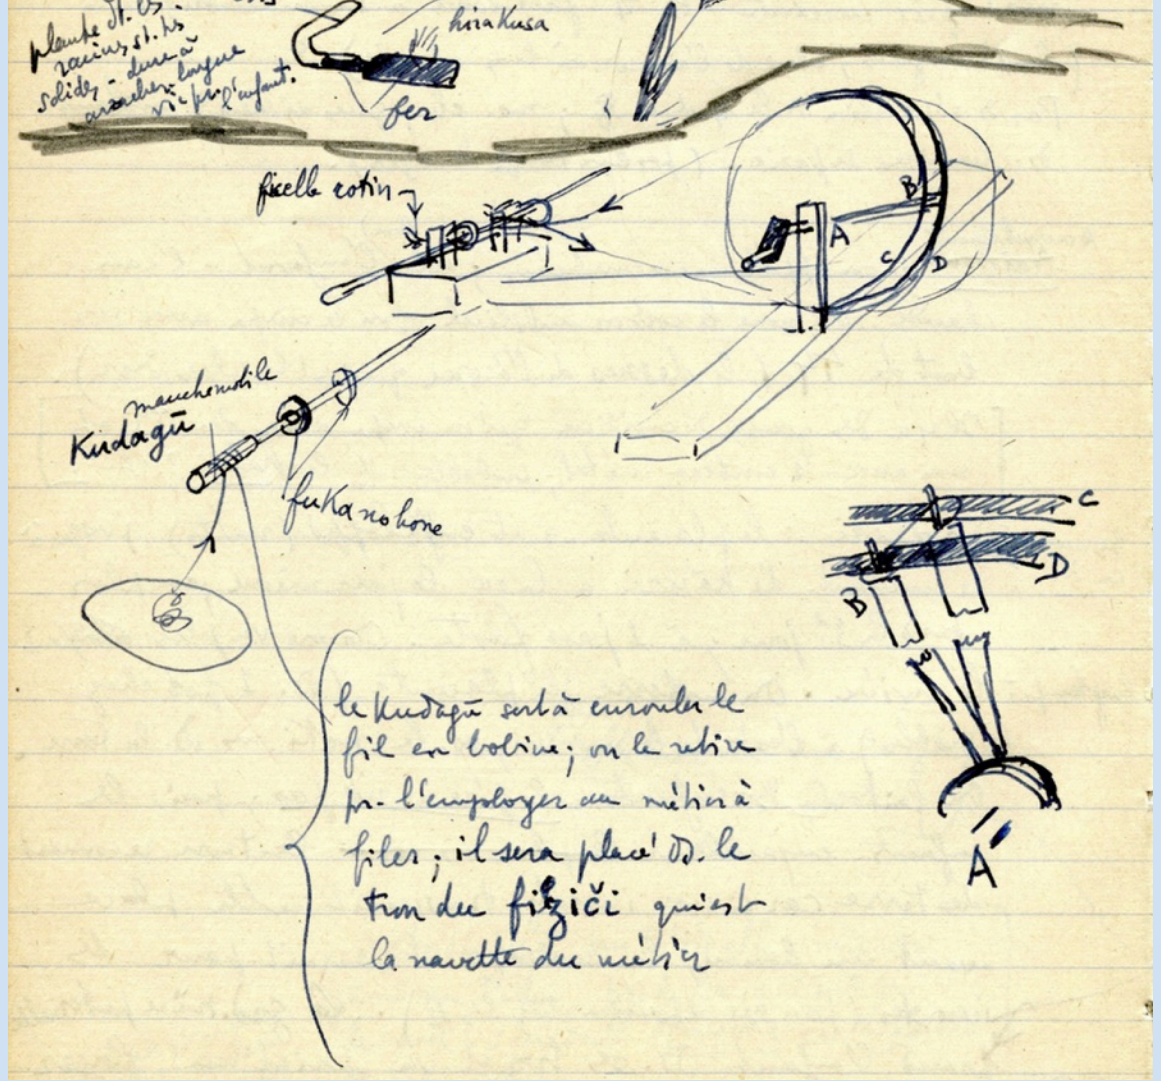 plante dt. les
racines st. très
solides - dure à
arracher. longue
vie pr. l'enfant.
hirakusa
fer
ficelle rotin
B
A
C
D
manche mobile
Kudagū
fukanohone
C
D
B
A
le Kudagū sert à enrouler le
fil en bobine; on le retire
pr. l'employer au métier à
filer; il sera placé ds. le
tron du fiziči qui est
la navette du métier